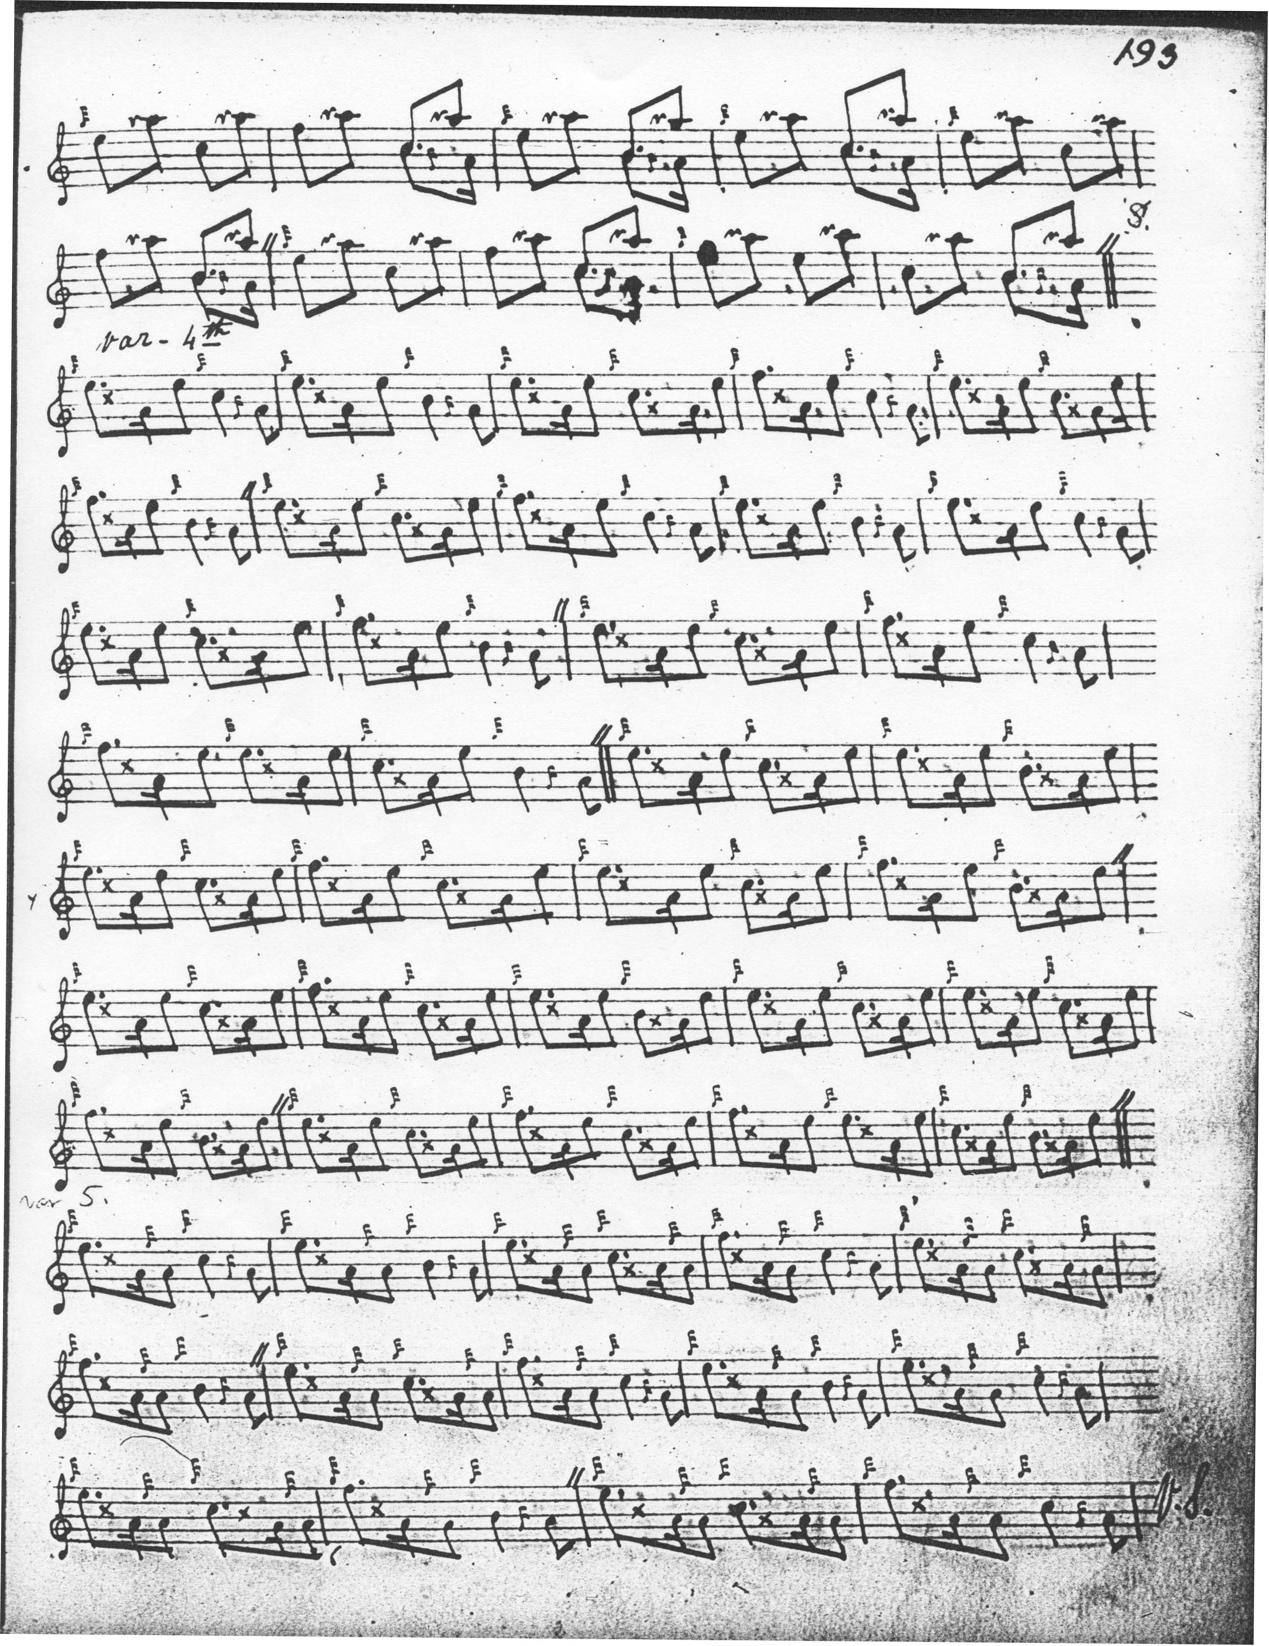 193
:S:
var - 4th
var 5.
V.S.